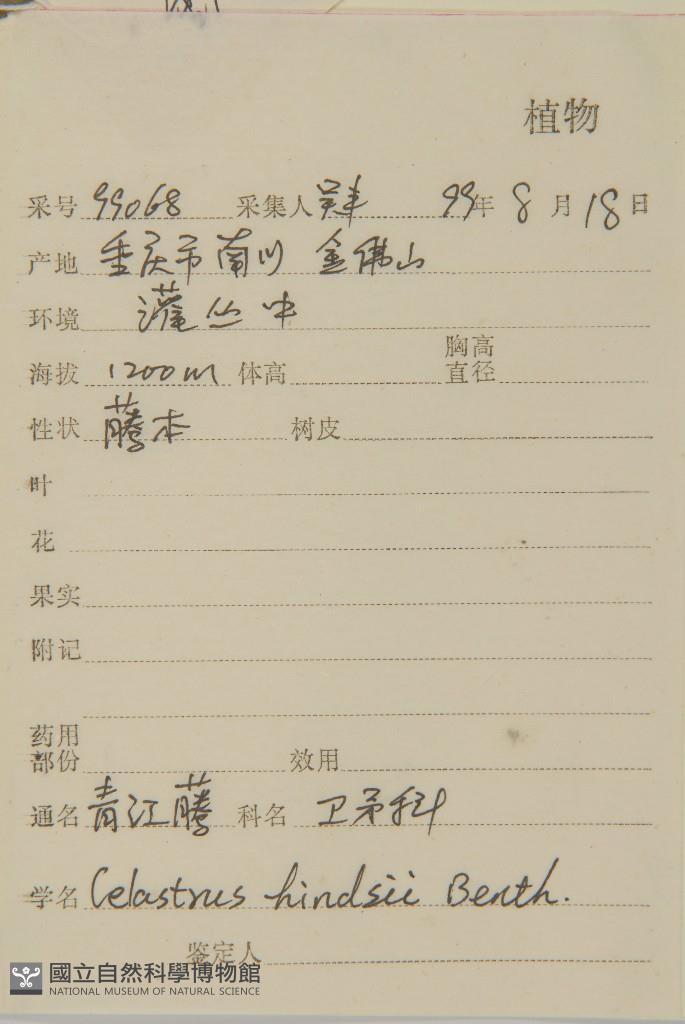 植物
采号 99068 采集人 吴丰 99年 8月 18日
产地 重庆市南川 金佛山
环境 灌丛中
海拔 1200m 体高 胸高直径
性状 藤本 树皮
叶
花
果实
附记
药用部份 效用
通名 青江藤 科名 卫矛科
学名 Celastrus hindsii Benth.
鉴定人
國立自然科學博物館
NATIONAL MUSEUM OF NATURAL SCIENCE